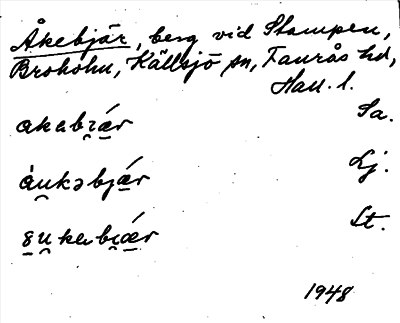 Åkebjär, berg vid Stampen,
Broholm, Källsjö sn, Faurås hd,
Hall. l.
akabɪ̯ǽr Sa.
àu̯kəbjǽr Lj.
ɞu̯kɐbɪ̯ǽr St.
1948